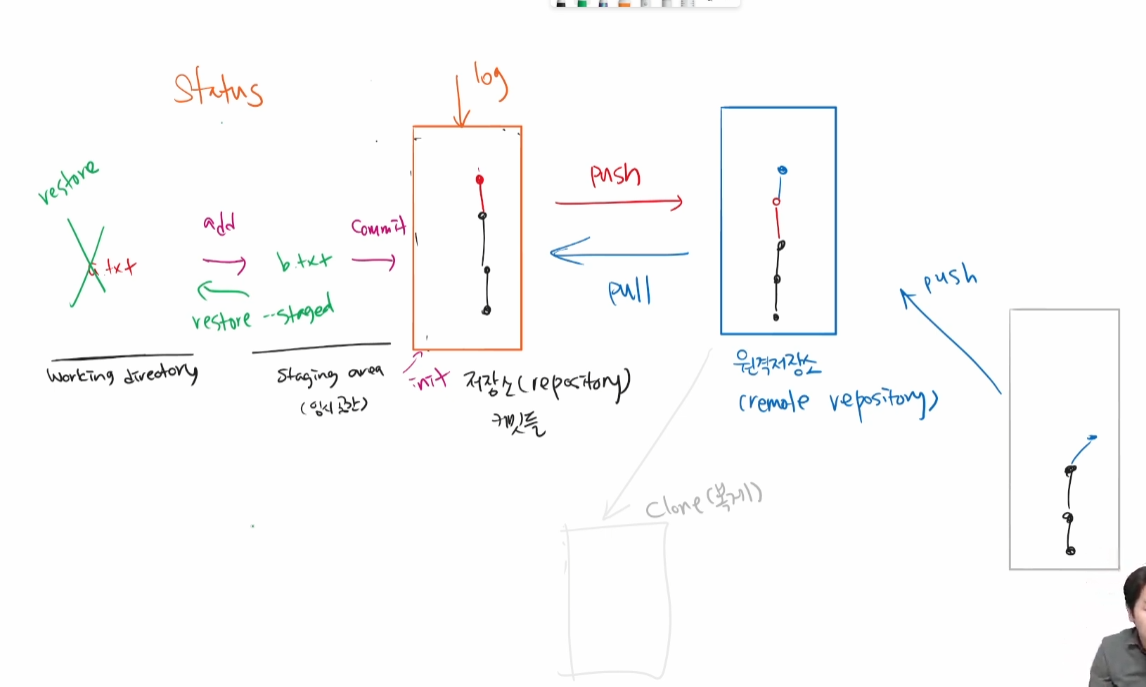 Status
log
restore
add
commit
a.txt
b.txt
restore --staged
push
pull
push
Working directory
Staging area
(임시공간)
init
저장소(repository)
커밋들
원격저장소
(remote repository)
Clone(복제)